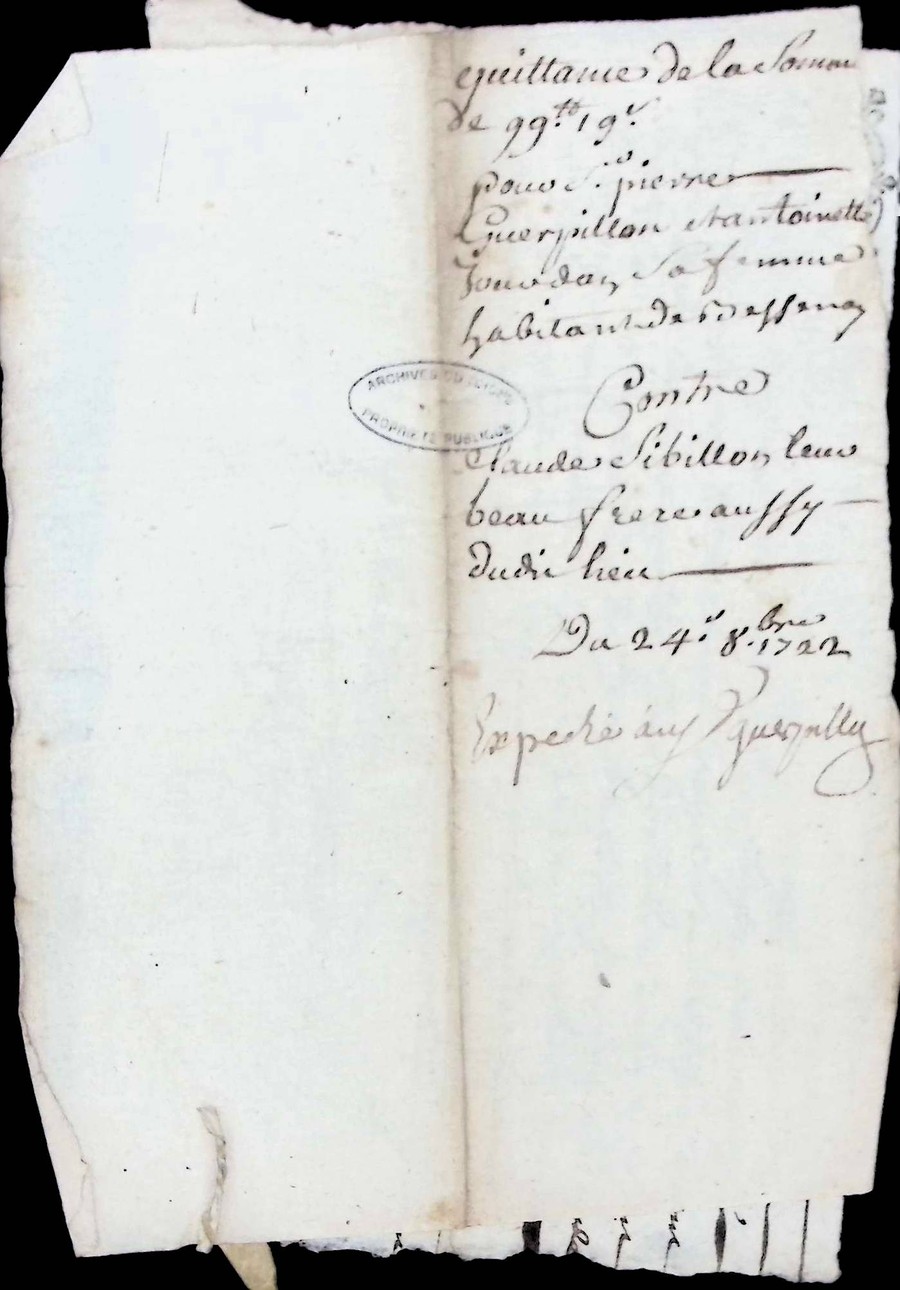 quittance de la Somme
de 99tt 19s
pour Sr pierre
Guerpillon et antoinette
Jourdan Sa femme
habitant de Bessenay
Contre
Claude Sibillon leur
beau frere aussy
dudit lieu
Du 24e 8.bre 1722
Expedié aud Guerpillon
ARCHIVES DU
PROPRIÉTÉ PUBLIQUE